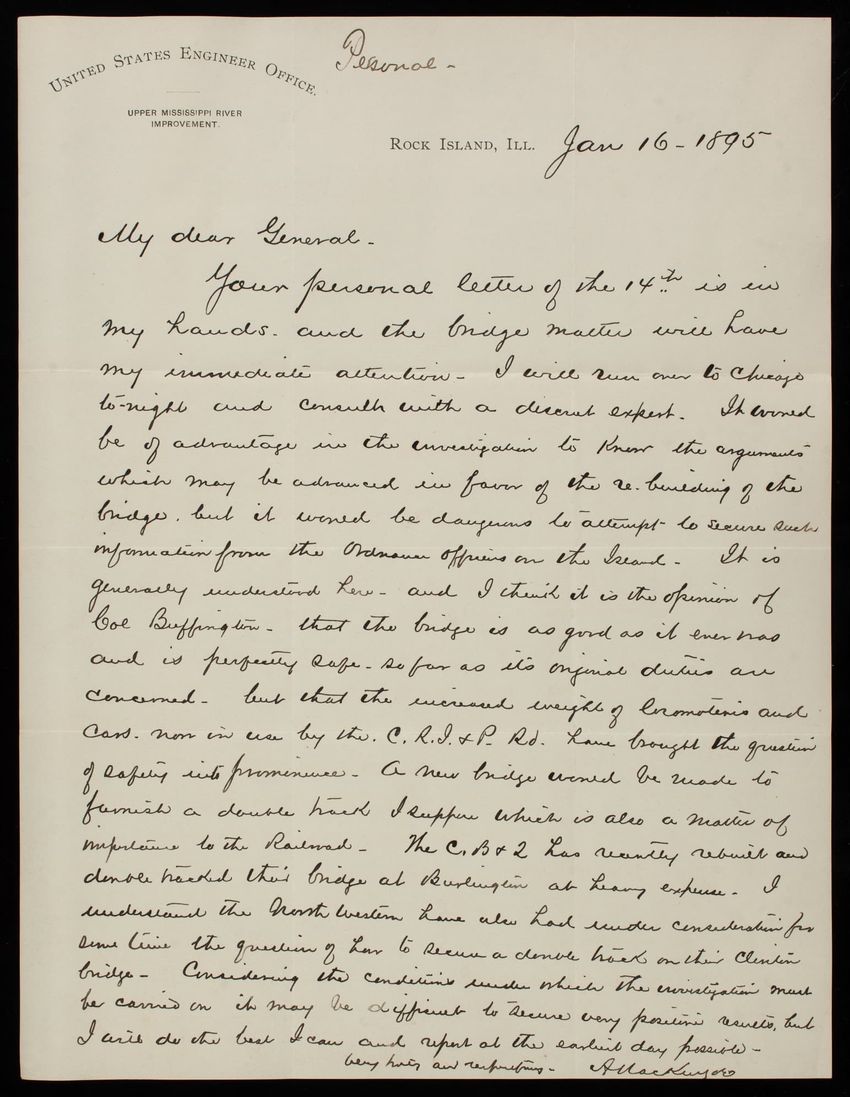 UNITED STATES ENGINEER OFFICE.
Personal -
UPPER MISSISSIPPI RIVER
IMPROVEMENT.
ROCK ISLAND, ILL. Jan 16 - 1895
My dear General -
Your personal letter of the 14th is in
my hands - and the bridge matter will have
my immediate attention - I will run over to Chicago
to-night and consult with a discreet expert. It would
be of advantage in the investigation to know the arguments
which may be advanced in favor of the re-building of the
bridge, but it would be dangerous to attempt to secure such
information from the Ordnance Officers on the Island - It is
generally understood here - and I think it is the opinion of
Col Buffington - that the bridge is as good as it ever was
and is perfectly safe - so far as its original duties are
concerned - but that the increased weight of locomotives and
cars - now in use by the C. R. I. & P. Rd. have brought the question
of safety into prominence - A new bridge would be made to
furnish a double track I suppose which is also a matter of
importance to the Railroad - The C, B & Q has recently rebuilt and
double tracked their bridge at Burlington at heavy expense - I
understand the North Western have also had under consideration for
some time the question of how to secure a double track on their Clinton
bridge - Considering the conditions under which the investigation must
be carried on it may be difficult to secure very positive results, but
I will do the best I can and report at the earliest day possible -
Very truly and respectfully - A Mackenzie